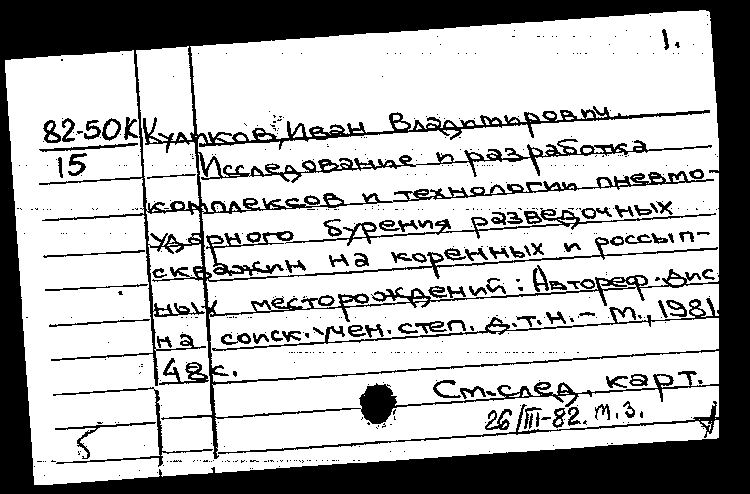 1.
82-50К Куликов, Иван Владимирович.
15 Исследование и разработка
комплексов и технологии пневмо-
ударного бурения разведочных
скважин на коренных и россып-
ных месторождений: Автореф. дис
на соиск. учен. степ. д.т.н. – М., 1981.
48 с.
См. след. карт.
26/III-82. м.з.
5